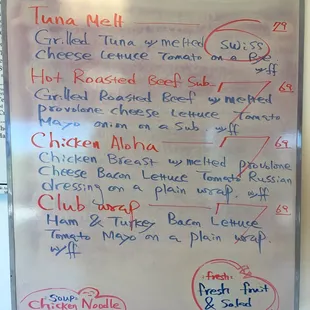 Tuna Melt 79
Grilled Tuna w melted Swiss
cheese Lettuce Tomato on a Rye
w/ff
Hot Roasted Beef Sub 69
Grilled Roasted Beef w melted
provolone cheese Lettuce Tomato
Mayo onion on a Sub w/ff
Chicken Aloha 69
Chicken Breast w melted provolone
Cheese Bacon Lettuce Tomato Russian
dressing on a plain wrap. w/ff
Club wrap 69
Ham & Turkey Bacon Lettuce
Tomato Mayo on a plain wrap.
w/ff
Soup
Chicken Noodle
fresh
fresh fruit
& Salad